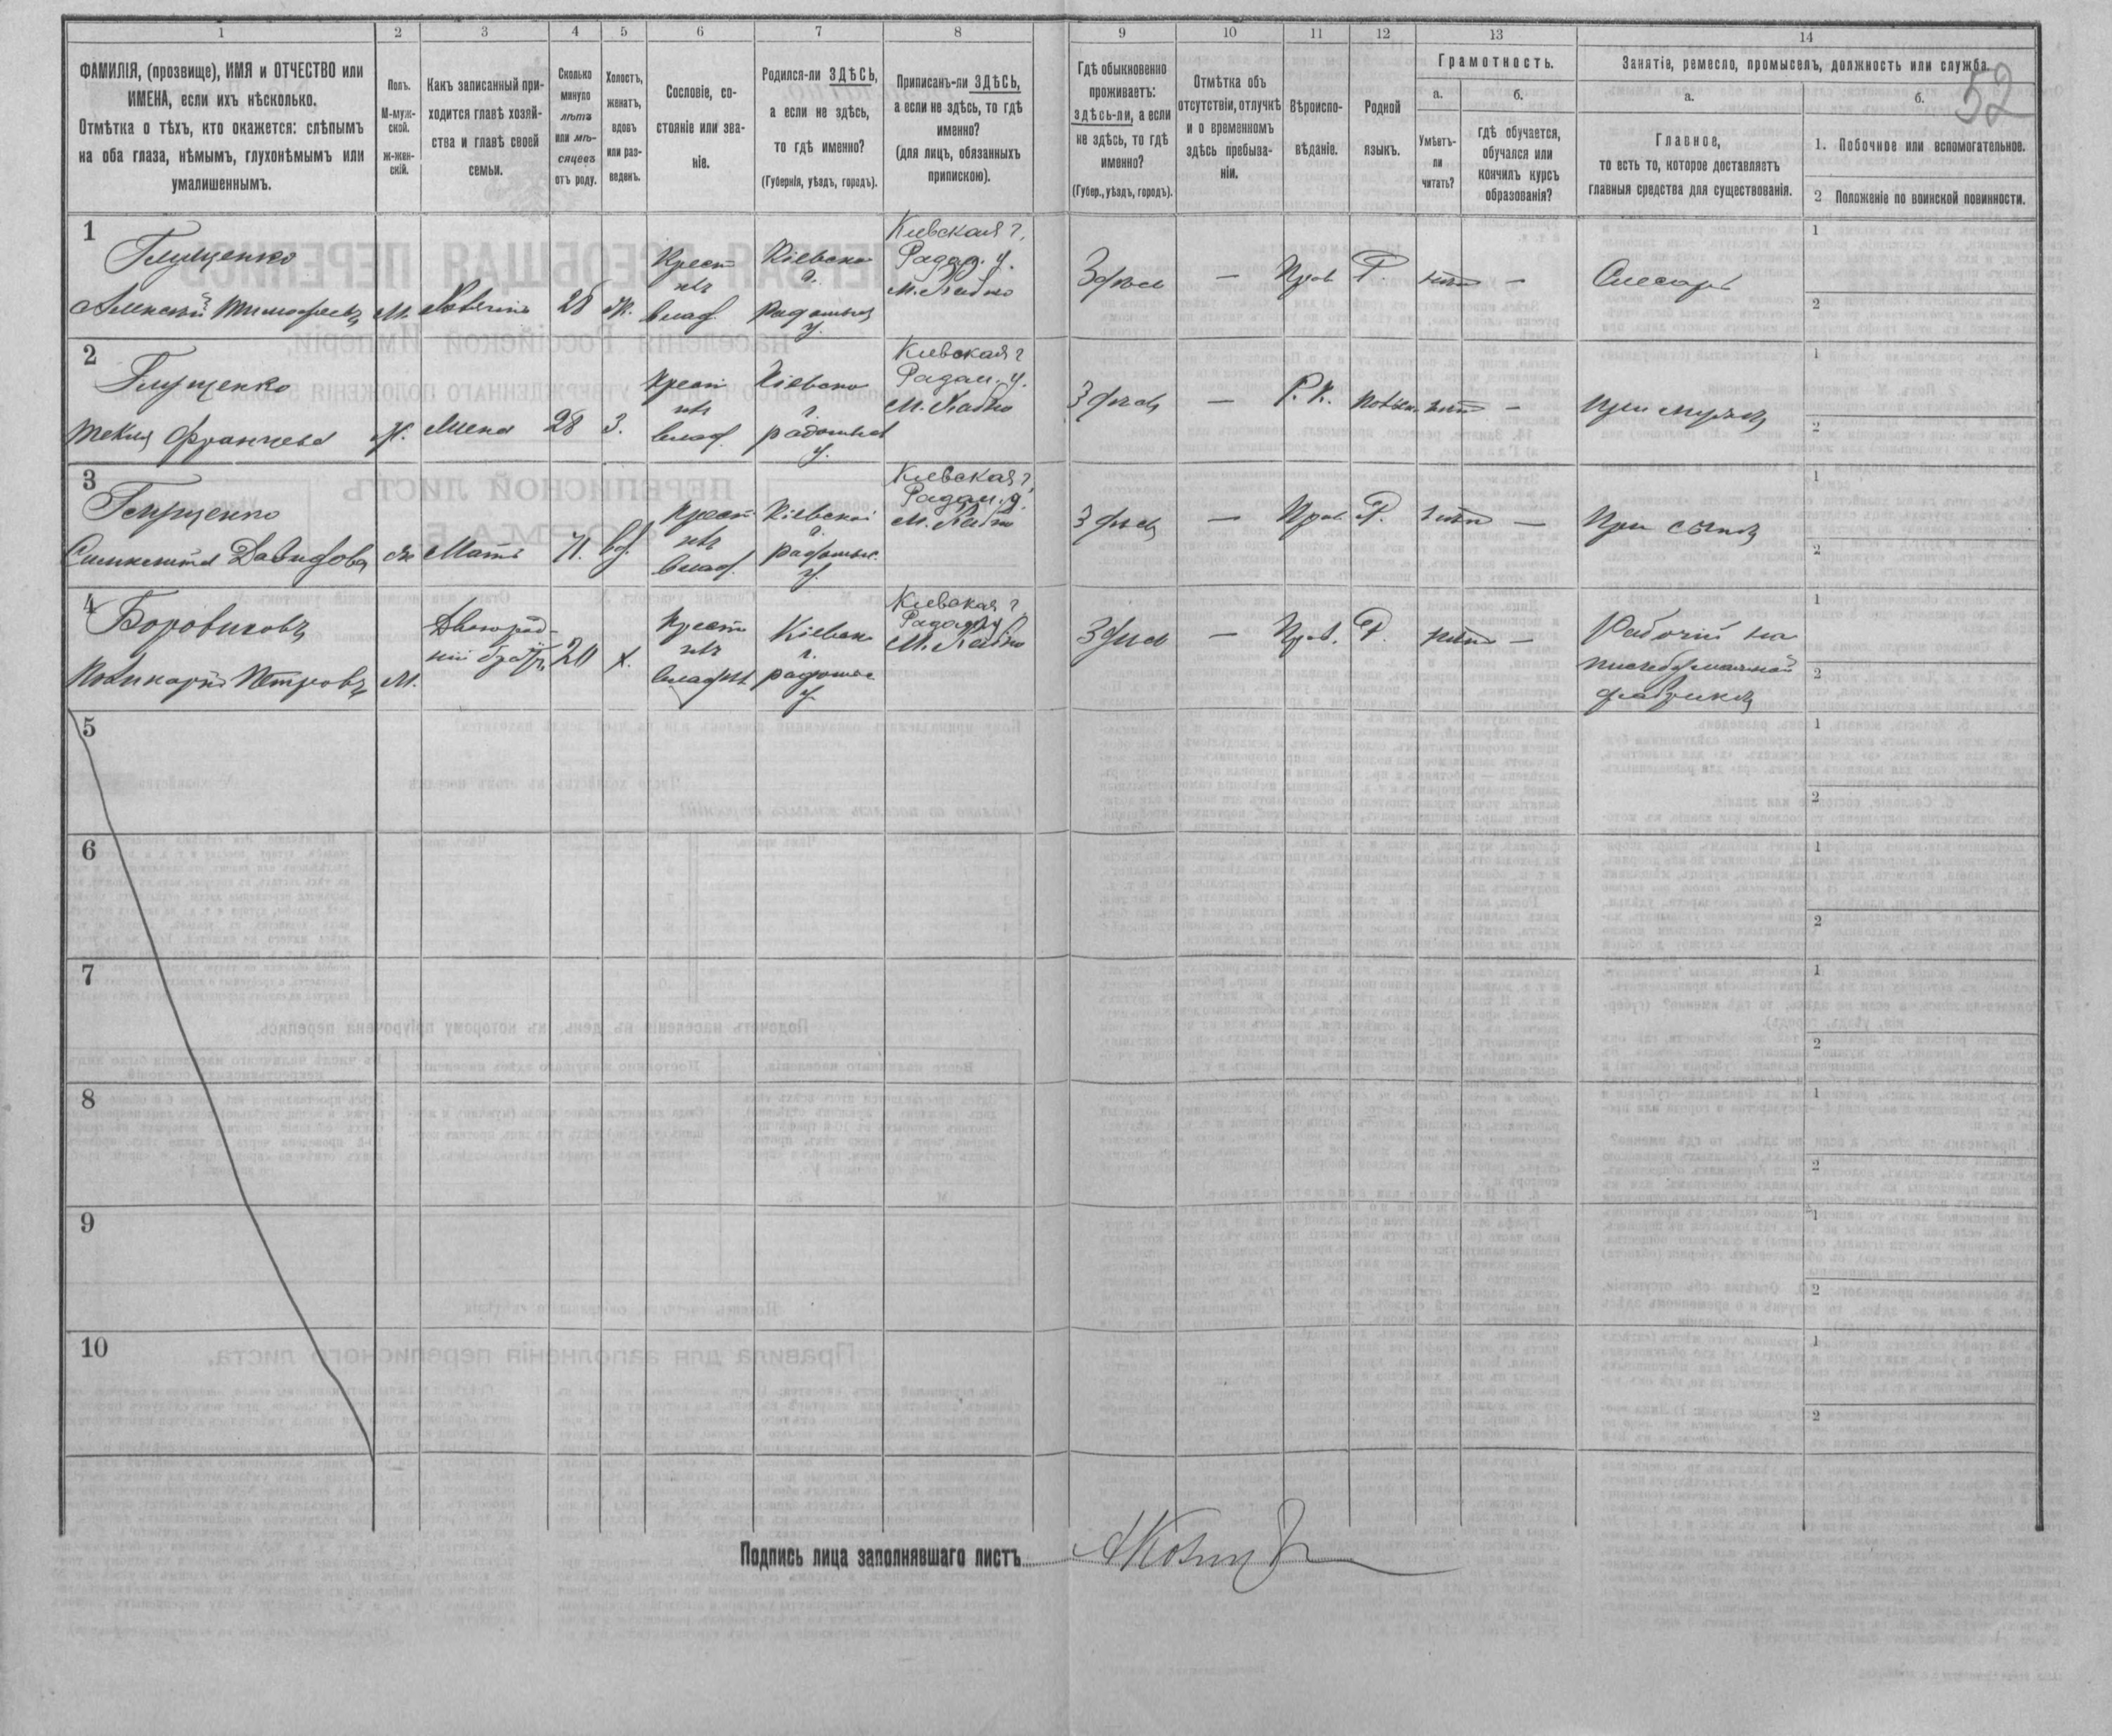 1 2 3 4 5 6 7 8 9 10 11 12 13 14
ФАМИЛІЯ, (прозвище), ИМЯ и ОТЧЕСТВО или
ИМЕНА, если ихъ нѣсколько.
Отмѣтка о тѣхъ, кто окажется: слѣпымъ
на оба глаза, нѣмымъ, глухонѣмымъ или
умалишеннымъ.
Полъ.
М-муж-
ской.
ж-жен-
скій.
Какъ записанный при-
ходится главѣ хозяй-
ства и главѣ своей
семьи.
Сколько
минуло
лѣтъ
или мѣ-
сяцевъ
отъ роду.
Холостъ,
женатъ,
вдовъ
или раз-
веденъ.
Сословіе, со-
стояніе или зва-
ніе.
Родился-ли ЗДѢСЬ,
а если не здѣсь,
то гдѣ именно?
(Губернія, уѣздъ, городъ).
Приписанъ-ли ЗДѢСЬ,
а если не здѣсь, то гдѣ
именно?
(для лицъ, обязанныхъ
припискою).
Гдѣ обыкновенно
проживаетъ:
здѣсь-ли, а если
не здѣсь, то гдѣ
именно?
(Губер., уѣздъ, городъ).
Отмѣтка объ
отсутствіи, отлучкѣ
и о временномъ
здѣсь пребыва-
ніи.
Вѣроиспо-
вѣданіе.
Родной
языкъ.
Грамотность.
а.
Умѣетъ-
ли
читать?
б.
гдѣ обучается,
обучался или
кончилъ курсъ
образованія?
Занятіе, ремесло, промыселъ, должность или служба.
52
а.
Главное,
то есть то, которое доставляетъ
главныя средства для существованія.
б.
1. Побочное или вспомогательное.
2 Положеніе по воинской повинности.
1
Глущенко
Алексѣй Тимофеевъ
М.
Хозяинъ
28
Ж.
Крест
изъ
влад.
Кіевско
г.
Радомысл
у.
Киевская г.
Радом. у.
М.
Здѣсь
—
Прав
Р.
нѣтъ
—
Слесарь
1
2
2
Глущенко
Текля Францева
Ж.
Жена
28
З.
Крест
изъ
влад.
Кіевско
г.
радомысл
у.
Киевская г
Радом. у.
М.
Здѣсь
—
Р. К.
Польск.
нѣтъ
—
При мужѣ
1
2
3
Глущенко
Синклита Давидова
Ж
Мать
71.
Вд.
Крест
изъ
влад.
Кіевской
г.
радомыс.
у.
Киевская г,
Радом. у.
М.
Здѣсь
—
Прав.
Р.
нѣтъ
—
При сынѣ
1
2
4
Боровиковъ
Поликарпъ Петровъ
М.
Двоюрод-
ній братъ
20
х.
Крест
изъ
влад.
Кіевск
г.
радомыс
у
Киевская г.
Радом. у
М.
Здѣсь
—
Прав.
Р.
нѣтъ
—
Рабочій на
писчебумажной
фабрикѣ
1
2
5
1
2
6
1
2
7
1
2
8
1
2
9
1
2
10
1
2
Подпись лица заполнявшаго листъ